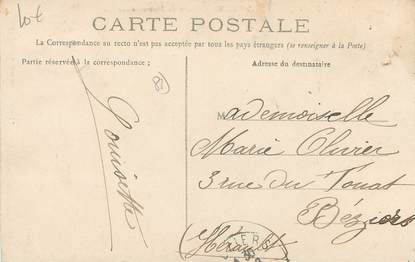 Lot
CARTE POSTALE
La Correspondance au recto n'est pas acceptée par tous les pays étrangers (se renseigner à la Poste)
Partie réservée à la correspondance :
Adresse du destinataire
Louisette
Mademoiselle
Marie Olivier
3 rue du Touat
Béziers
(Hérault)